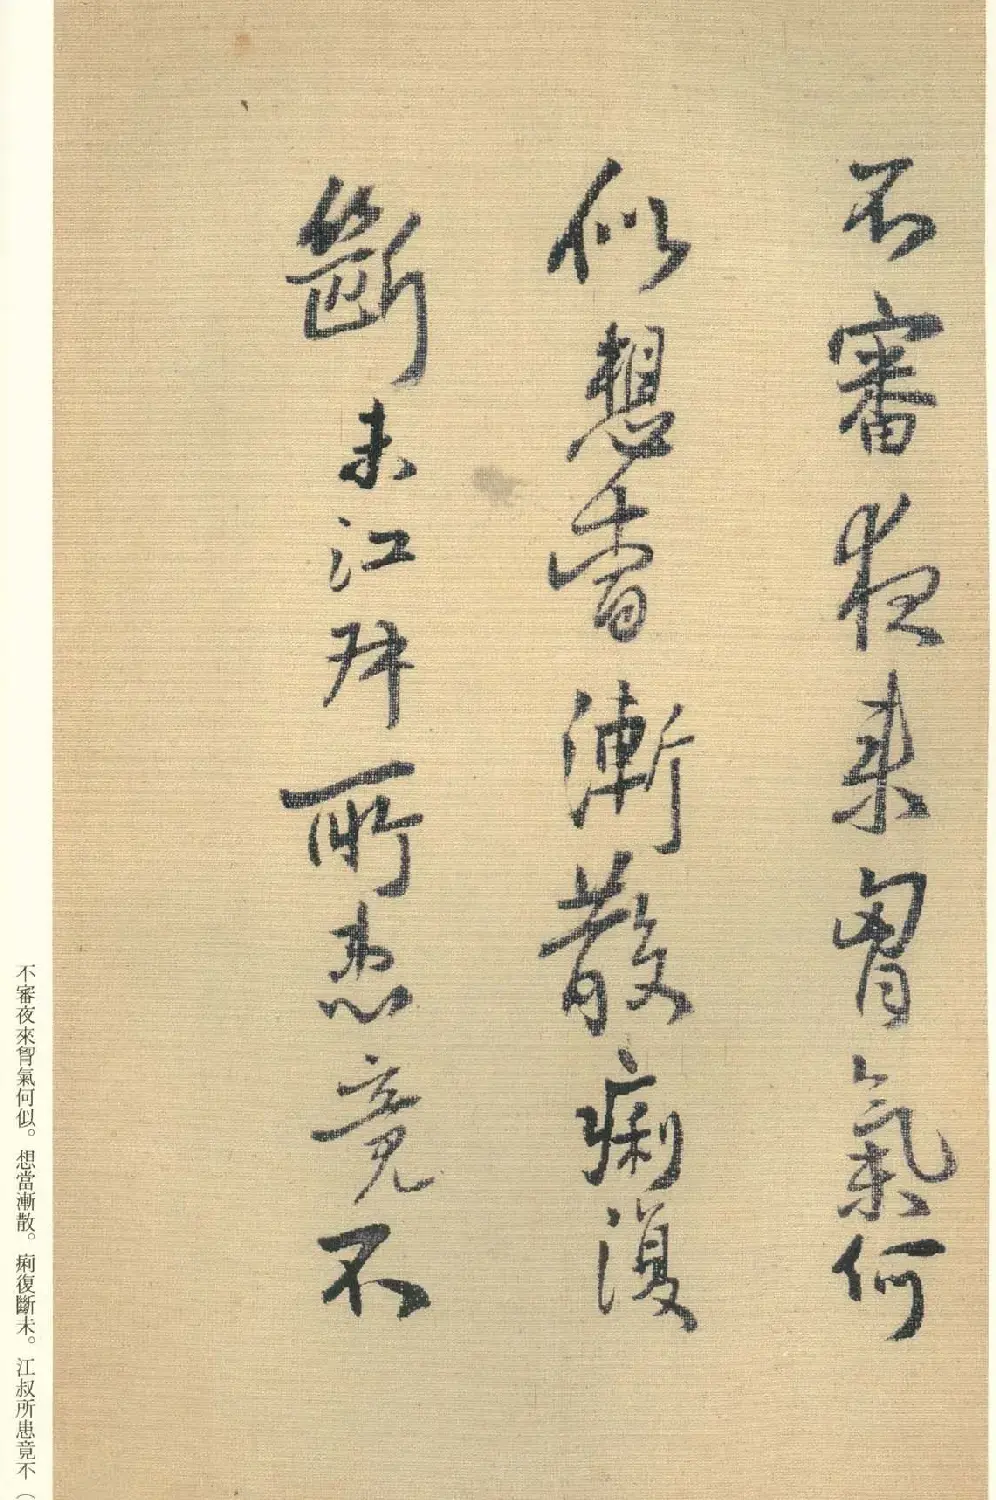 不審夜來胷氣何
似想當漸散痢復
斷未江叔所患竟不
不審夜來胷氣何似。想當漸散。痢復斷未。江叔所患竟不（